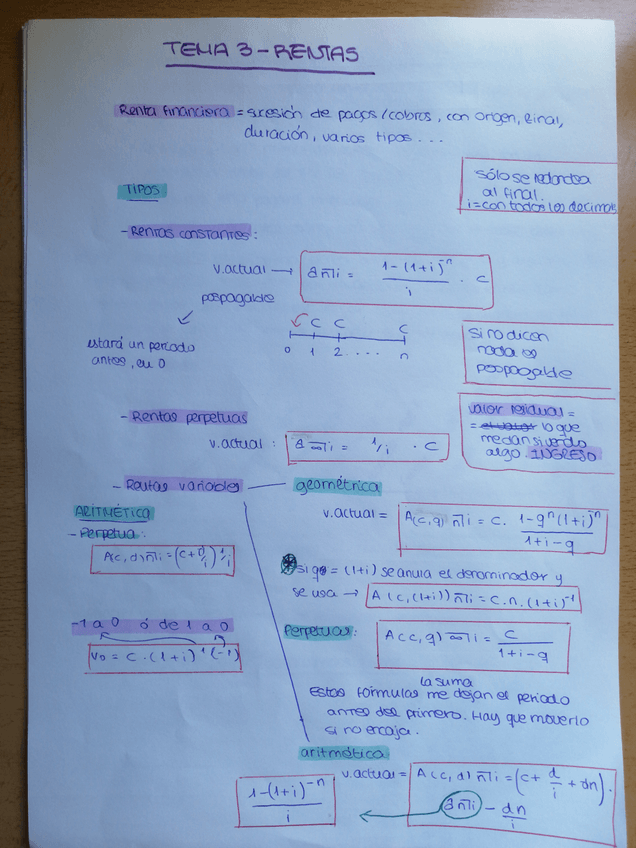 TEMA 3 - RENTAS
Renta financiera = sucesión de pagos/cobros, con origen, final,
duración, varios tipos...
sólo se redondea
al final.
i = con todos los decimales
TIPOS
- Rentas constantes:
v.actual → a n̅|i = (1-(1+i)^-n)/i · C
pospagable
estará un periodo
antes, en 0
C C C
0 1 2 .... n
si no dicen
nada es
pospagable
- Rentas perpetuas
v.actual : a ∞̅|i = 1/i · C
valor residual =
= el valor lo que
me dan si vendo
algo. INGRESO
- Rentas variables
geométrica
v.actual = A(c,q) n̅|i = C· (1-q^n(1+i)^-n)/(1+i-q)
* si q = (1+i) se anula el denominador y
se usa → A (c,(1+i)) n̅|i = C.n.(1+i)^-1
Perpetuas: A(c,q) ∞̅|i = C/(1+i-q)
ARITMÉTICA
- Perpetua:
A(c,d) n̅|i = (c+D/i) 1/i
-1 a 0 ó de 1 a 0
V0 = C·(1+i)^1 (-1)
la suma
Estas fórmulas me dejan el periodo
antes del primero. Hay que moverlo
si no encaja.
aritmética
v.actual = A(c,d) n̅|i = (c+ d/i + dn).
a n̅|i - dn/i
(1-(1+i)^-n)/i